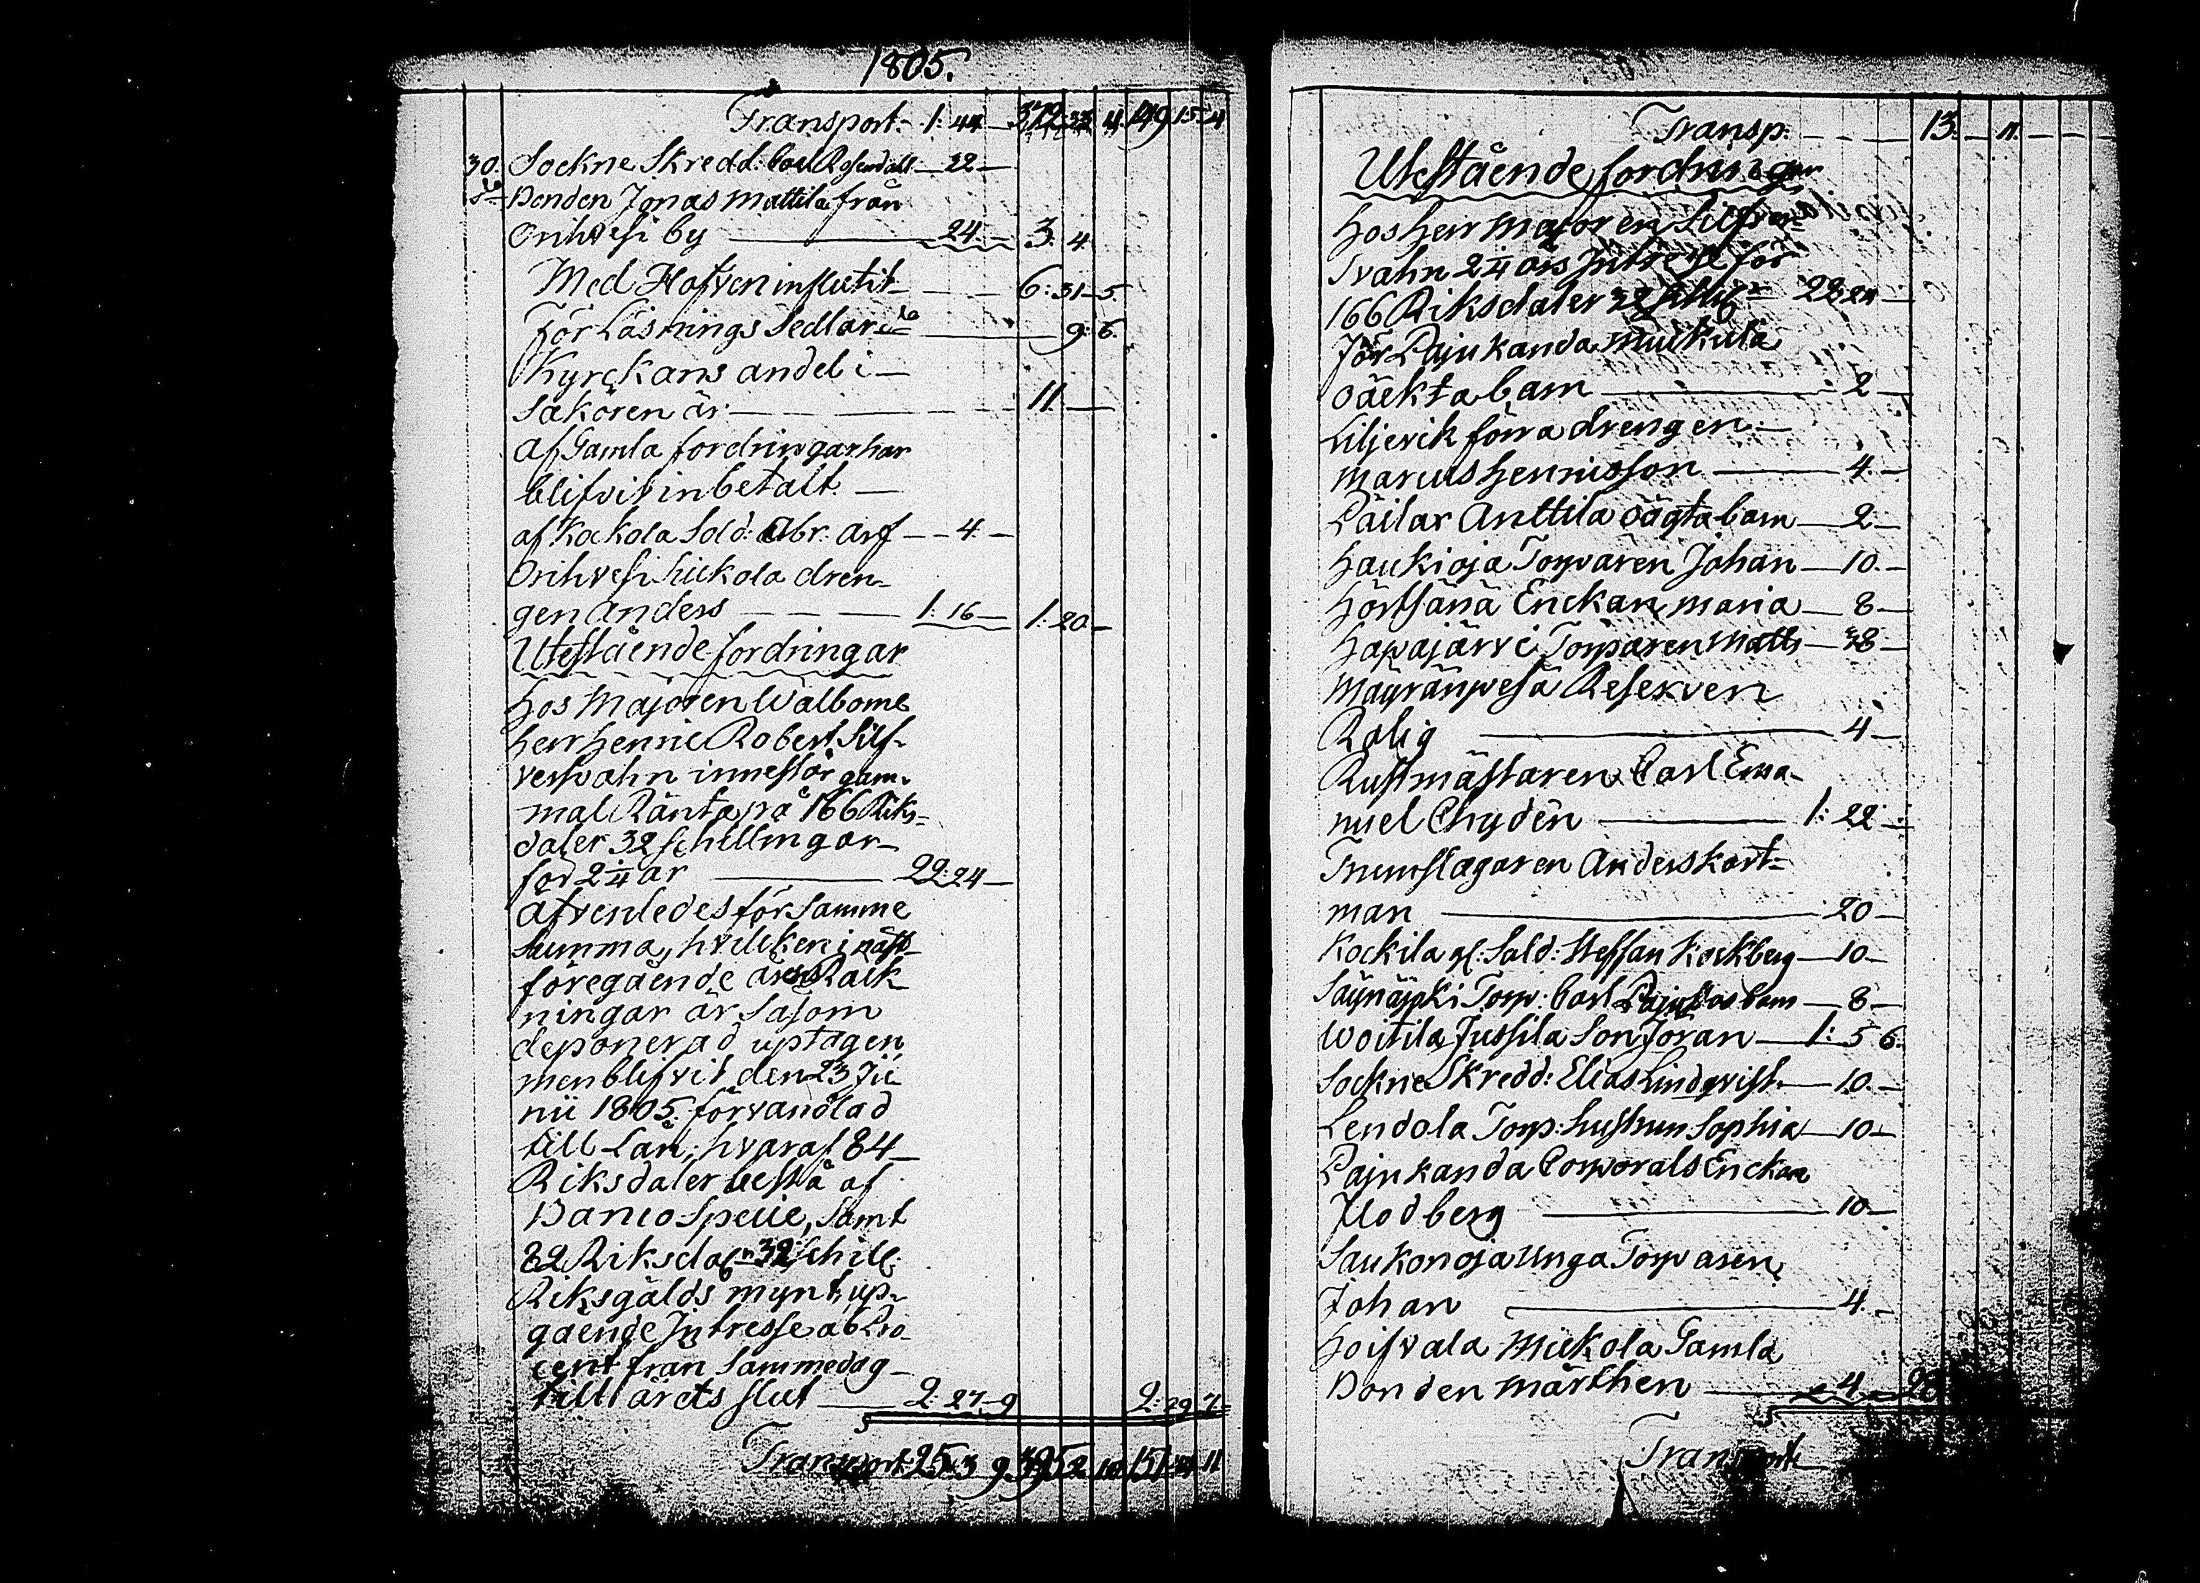 1805.
Transport. 1: 44 — 372 32 4. 149 15 4
30. Sockne Skredd: Carl Rosendall — 32 —
Bonden Jonas Mattila från
Orihvesi by — 24. — 3. 4.
Med Håfven influtit — 6: 31 — 5.
För Läsnings Sedlar — 9. 6.
Kyrckans andel i —
Sakören är — 11. —
Af Gamla fordringar har
blifvit inbetalt. —
af Kockola Sold: Abr. Arf — 4. —
Orihvesi Hukola dren-
gen Anders — 1: 16 — 1: 20 —
Utestående fordringar
Hos Majoren Wälborne
Herr Henric Robert Silf-
versvahn innestår gam-
mal Ränta på 166 Riks-
daler 32 schillingar
för 2 1/4 år — 22: 24 —
Afvenledes för samme
Summa, hvilcken i näst-
föregående års Räk
ningar är såsom
deponerad uptagen
men blifvit den 23 Ju
nii 1805. förvandlad
till Lån, hvaraf 84 —
Riksdaler bestå af
Banco Specie, samt
82 Riksdal 32 Schill:
Riksgälds mynt, up-
gående Intresse a 6 Pro
cent från Samme dag —
till årets slut — 2: 27 — 9 2: 29 7.
Transport 25. 3 9 395 2 10 151 11
Transp. — — — 13. — 11. — — —
Utestående fordringar
Hos Herr Majoren Silfver-
svahn 2 1/4 års Intresse för
166 Riksdaler 32 Schill 22 24 —
För Pajukanda Muckula
oäckta barn — 2 —
Liljerik förra drengen —
Marcus Henricsson — 4 —
Päilax Anttila oägta barn — 2 —
Haukioja Torparen Johan — 10. —
Hörtsänä Enckan Maria — 8 —
Hapajärvi Torparen Matts — 38 —
Mäyränpesä Reserven
Rolig — 4 —
Rustmästaren Carl Ema-
nuel Chydén — 1: 22 —
Trumslagaren Anders Kort-
man — 20 —
Kockila gl: Sold: Steffan Kockberg — 10 —
Säynäjoki Torp: Carl barn — 8 —
Woitila Jussila Son Jöran — 1: 5 6.
Sockne Skredd: Elias Lindqvist. — 10. —
Lendola Torp: hustrun Sophia — 10 —
Pajukanda Corporals Enckan
Flodberg — 10. —
Saukonoja Unga Torparen
Johan — 4. —
Hoifvala Muckola Gamla
Bonden Märthen — 4.
Transport